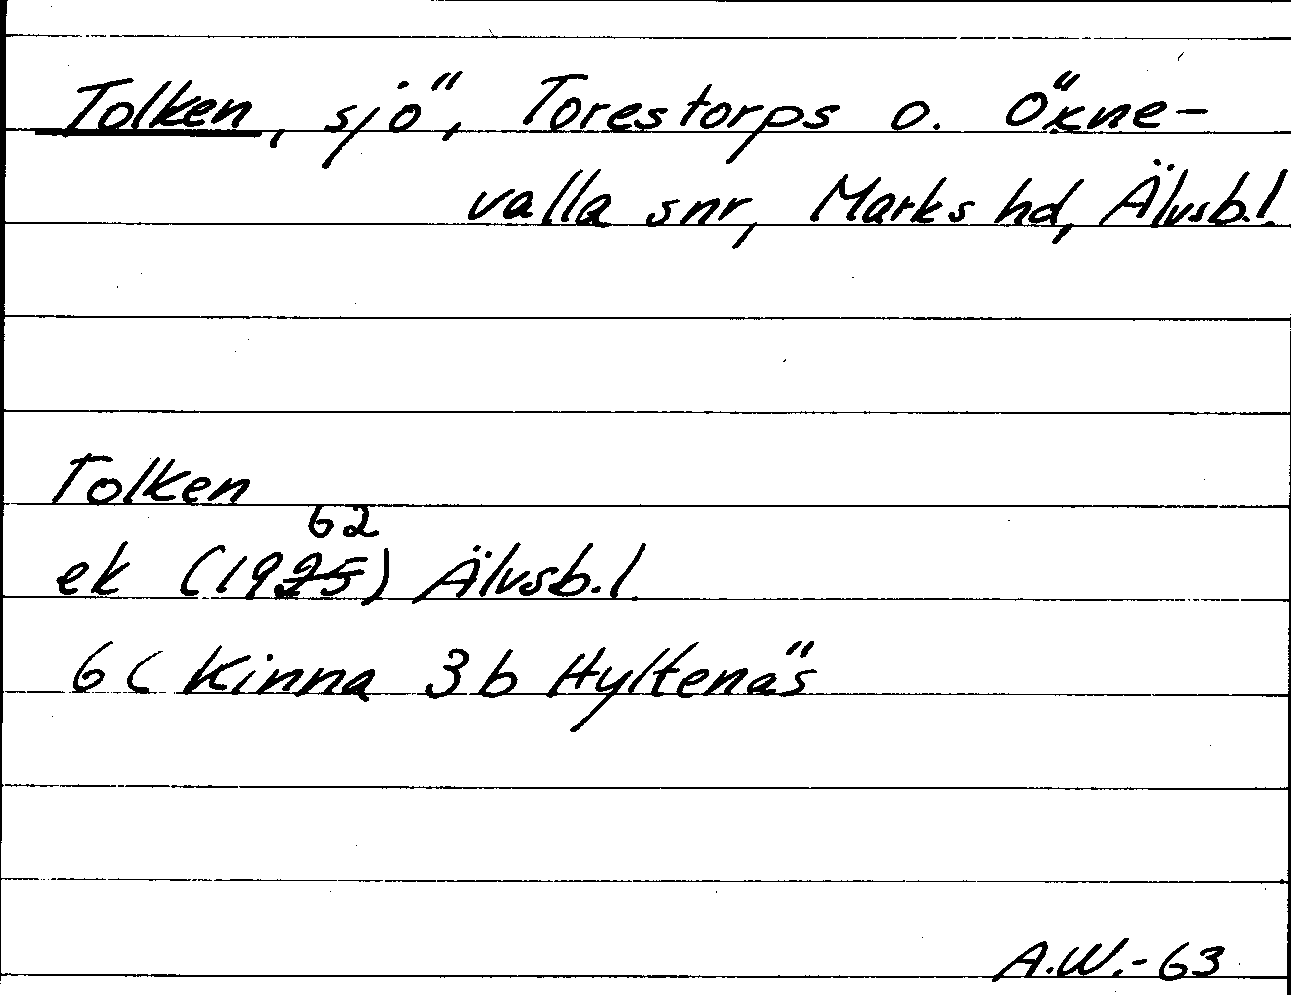 Tolken, sjö, Torestorps o. Öxne-
valla snr, Marks hd, Älvsb.l.
Tolken
62
ek (1925) Älvsb.l.
6C Kinna 3b Hyltenäs
A.W.-63